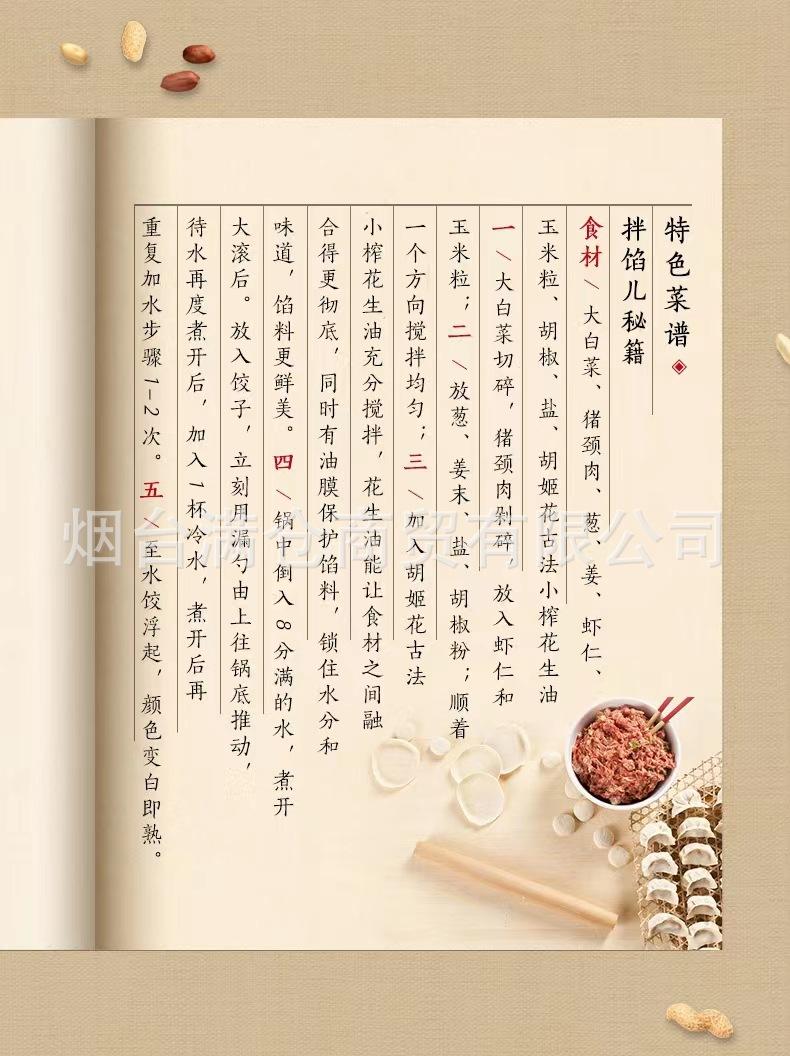 特色菜谱
拌馅儿秘籍
食材/大白菜、猪颈肉、葱、姜、虾仁、
玉米粒、胡椒、盐、胡姬花古法小榨花生油
一/大白菜切碎，猪颈肉剁碎 放入虾仁和
玉米粒；二/放葱、姜末、盐、胡椒粉；顺着
一个方向搅拌均匀；三/加入胡姬花古法
小榨花生油充分搅拌，花生油能让食材之间融
合得更彻底，同时有油膜保护馅料，锁住水分和
味道，馅料更鲜美。四/锅中倒入8分满的水，煮开
大滚后。放入饺子，立刻用漏勺由上往锅底推动，
待水再度煮开后，加入1杯冷水，煮开后再
重复加水步骤1-2次。五/至水饺浮起，颜色变白即熟。
烟台满仓商贸有限公司